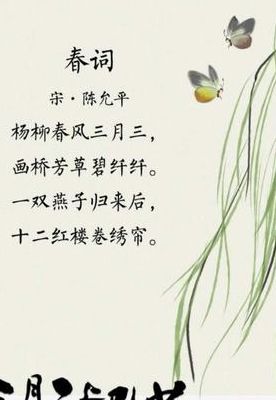 春词
宋·陈允平
杨柳春风三月三，
画桥芳草碧纤纤。
一双燕子归来后，
十二红楼卷绣帘。